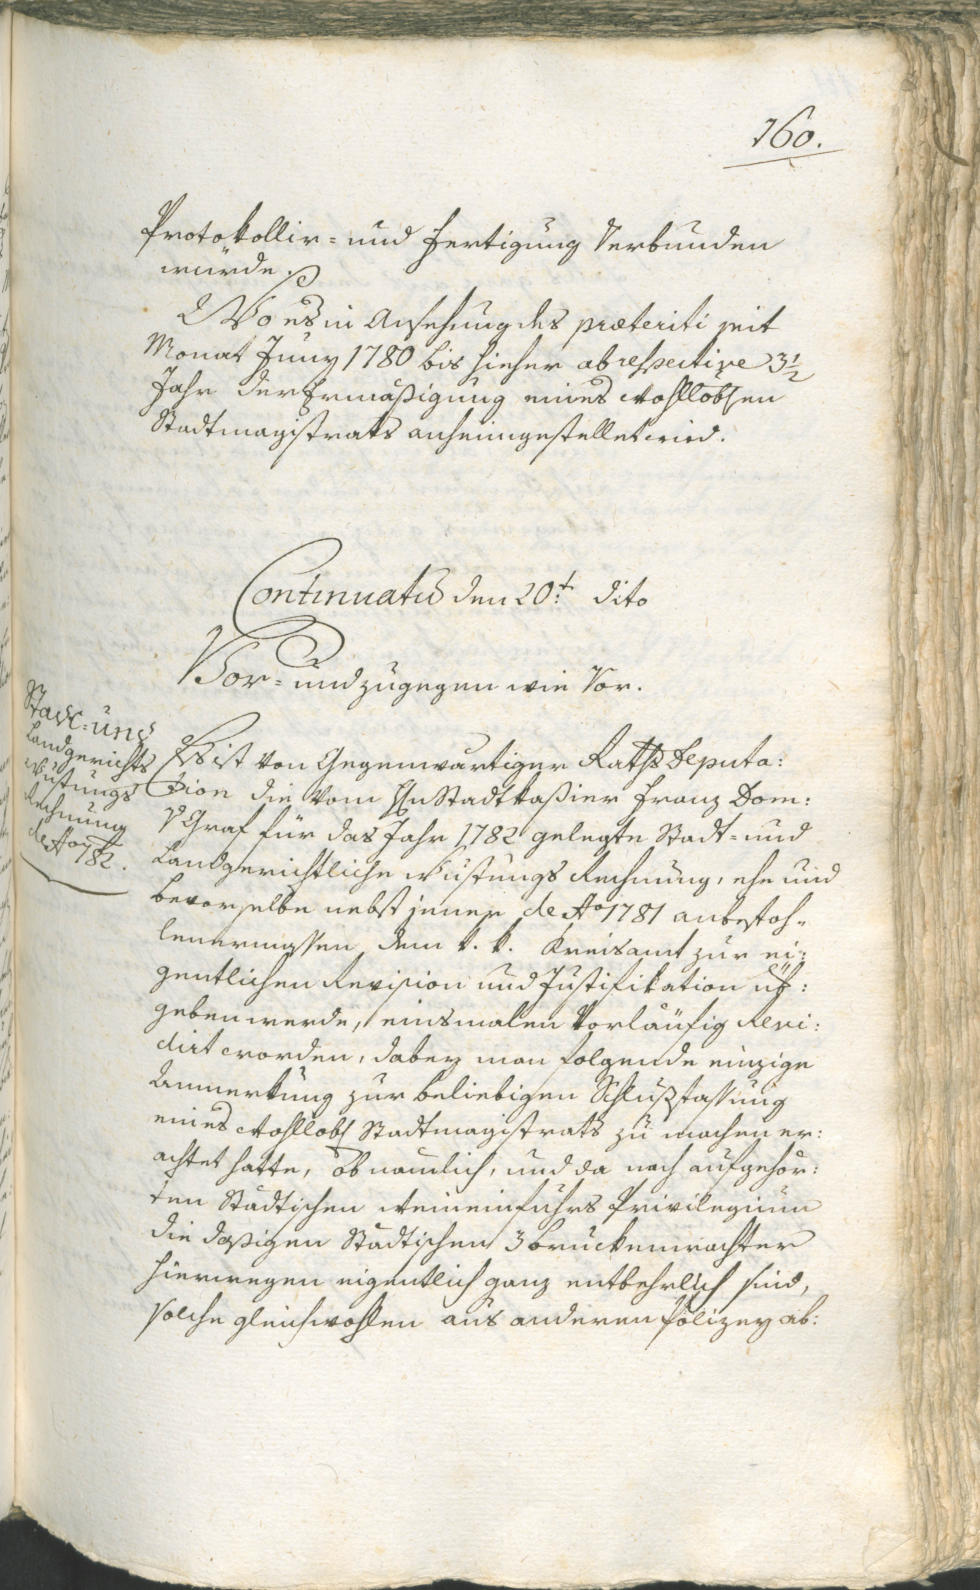 160.
Protokollir= und Fertigung verbunden
würde.
Wo es in Ansehung des præteriti seit
Monat Juny 1780 bis hieher ab respective 3 1/2
Jahr der Ermäßigung eines Wohllobsen
Stadtmagistrats anheimgestellet wird.
Continuatũ den 20.t dito
Vor= und zugegen wie Vor.
Stadt= und
Landgerichts
Wustungs
Rechnung
de Ao 782.
Es ist von Gegenwärtiger Raths Deputa:
zion die vom Hn Stadtkaßier Franz Dom:
Graf für das Jahr 1782 gelegte Stadt= und
Landgerichtliche Wustungs Rechnung, ehe und
bevor selbe nebst jener de Ao 1781 anbefoh=
lenermassen dem k. k. Kreisamt zur ei:
gentlichen Revision und Justifikation üb:
geben werde, einsmalen Vorläufig Revi:
dirt worden, dabey man folgende einzige
Anmerkung zur beliebigen Schlußfassung
eines Wohllobs Stadtmagistrats zu machen er:
achtet hatte, ob namlich, und da nach aufgehör:
ten Städtischen Weineinfuhrs Privilegium
die dasigen Städtischen 3 Bruckenwachter
hierwegen eigentlich ganz entbehrlich sind,
solche gleichwohlen aus anderen Polizey ab: